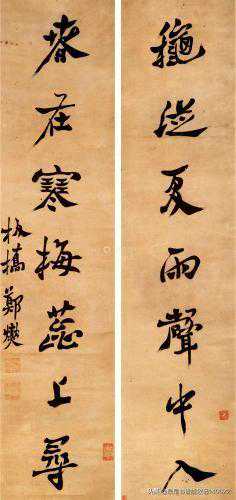 龝從夏雨聲中入
春在寒梅蕊上尋
板橋鄭燮